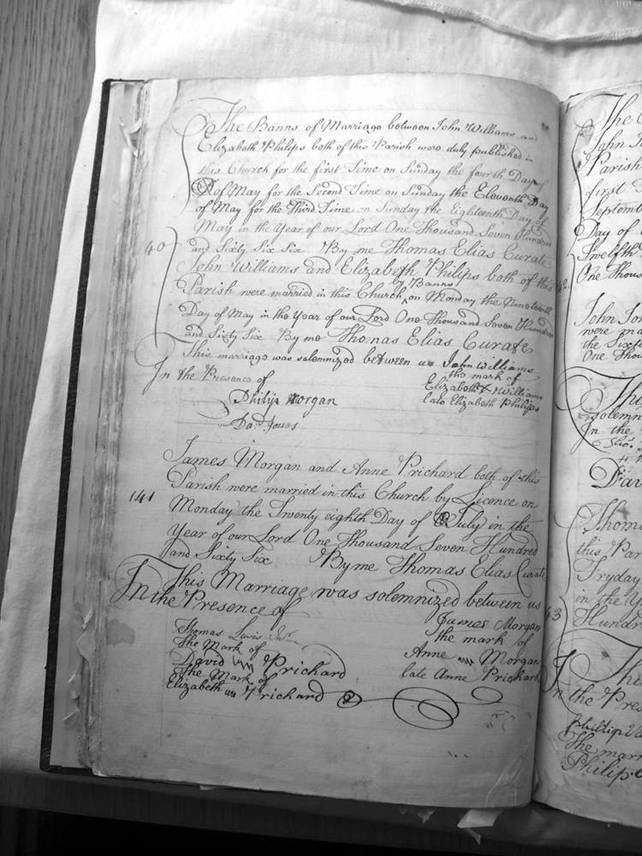 The Banns of Marriage between John Williams and
Elizabeth Philips both of this Parish were duly published in
this Church for the first Time on Sunday the fourth Day
of May for the Second Time on Sunday the Eleventh Day
of May for the Third Time on Sunday the Eighteenth Day of
May in the Year of our Lord One Thousand Seven Hundred
and Sixty Six Six By me Thomas Elias Curate
40
John Williams and Elizabeth Philips both of this
by Banns
Parish were married in this Church on Monday the Nineteenth
Day of May in the Year of our Lord One Thousand Seven Hundred
and Sixty Six By me Thomas Elias Curate
This marriage was solemnized between us John Williams
the mark of
In the Presence of
Elizabeth X Williams
Philip Morgan
late Elizabeth Philips
Da: Jones
James Morgan and Anne Prichard both of this
Parish were married in this Church by Licence on
141
Monday the Twenty eighth Day of July in the
Year of our Lord One Thousand Seven Hundred
and Sixty Six By me Thomas Elias Curate
This Marriage was solemnized between us
In the Presence of
James Morgan
Thomas Lewis
the mark of
The Mark of
Anne Morgan
David Prichard
late Anne Prichard
The Mark of
Elizabeth Prichard
The
John
Parish
first
Septemb
Day of
Twelfth
One Thous
John Jon
were m
the Sixt
One Thou
This
Solemn
In the
Thoma
this Par
Fryday
in the Y
43
Hundr
This
In the Pre
The mar
Philip